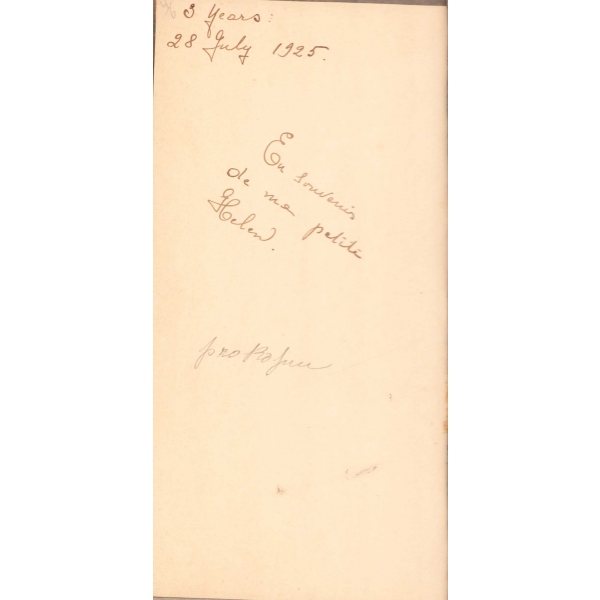 3 Years:
28 July 1925.
En souvenir
de ma petite
Helen.